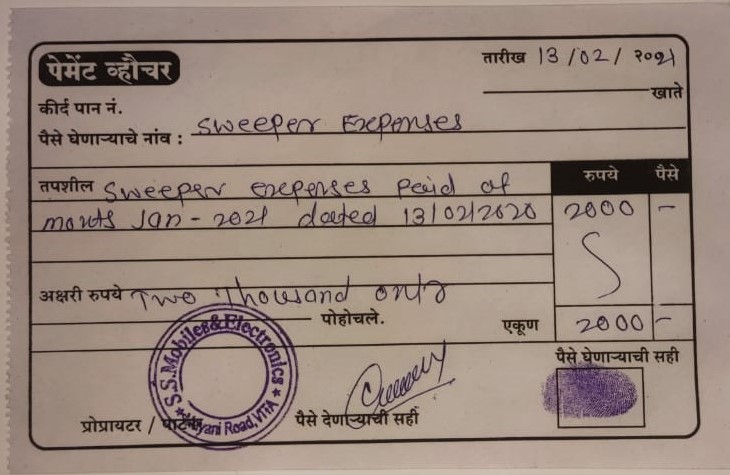 पेमेंट व्हौचर
तारीख 13/02/2021
खाते
कीर्द पान नं.
पैसे घेणाऱ्याचे नांव : Sweeper Expenses
रुपये पैसे
तपशील Sweeper expenses paid of
month Jan - 2021 dated 13/02/2020 2000 -
अक्षरी रुपये Two Thousand only
पोहोचले. एकूण 2000 -
पैसे घेणाऱ्याची सही
S.S.Mobiles&Electronics
Road, VITA
प्रोप्रायटर / पार्टनर पैसे देणाऱ्याची सही